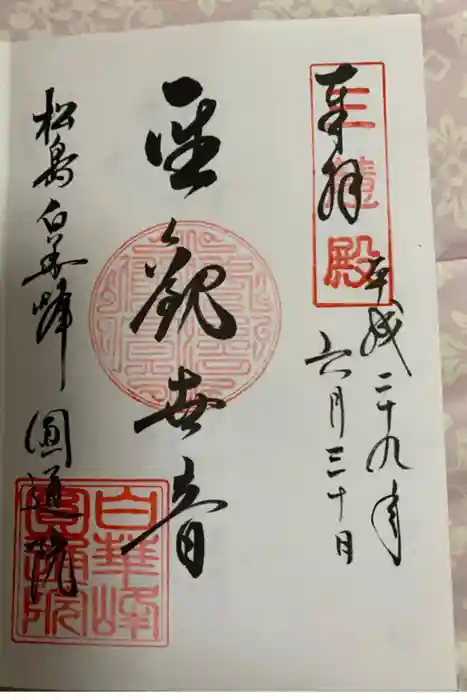 奉拝
三慧殿
平成二十九年
六月三十日
聖観世音
松島白華峰圓通院
白華峰
圓通院